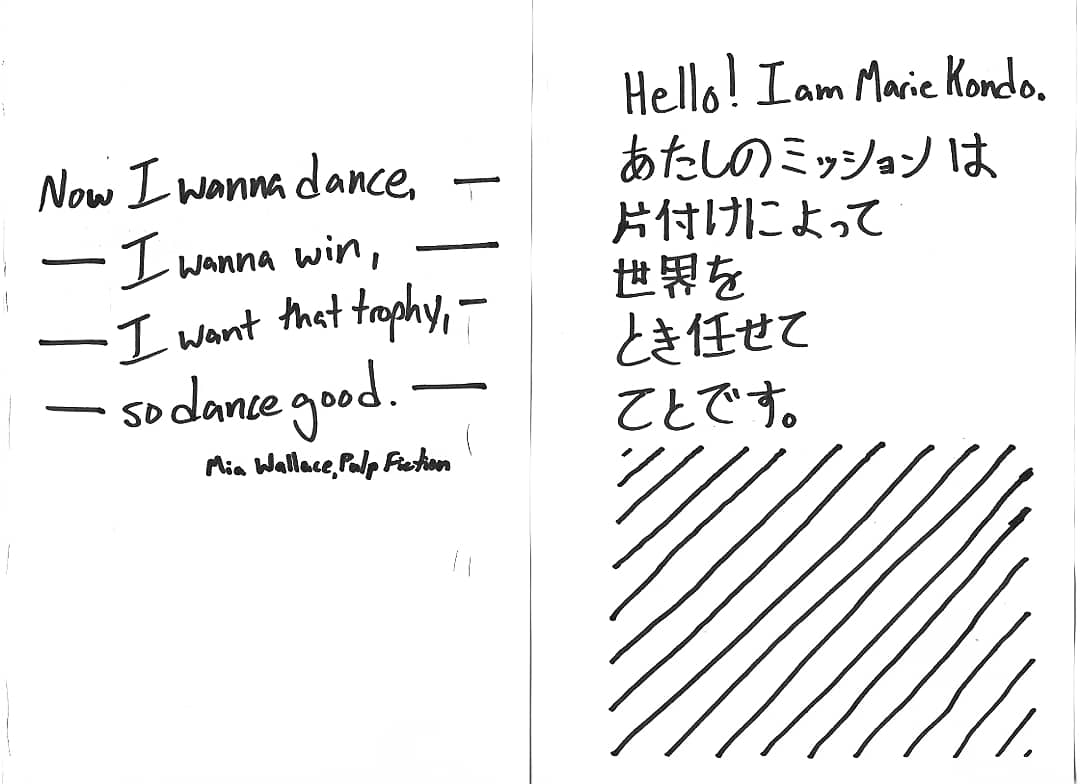 Now I wanna dance,
I wanna win,
I want that trophy,
so dance good.
Mia Wallace, Pulp Fiction
Hello! I am Marie Kondo.
あたしのミッションは
片付けによって
世界を
とき任せて
てとです。